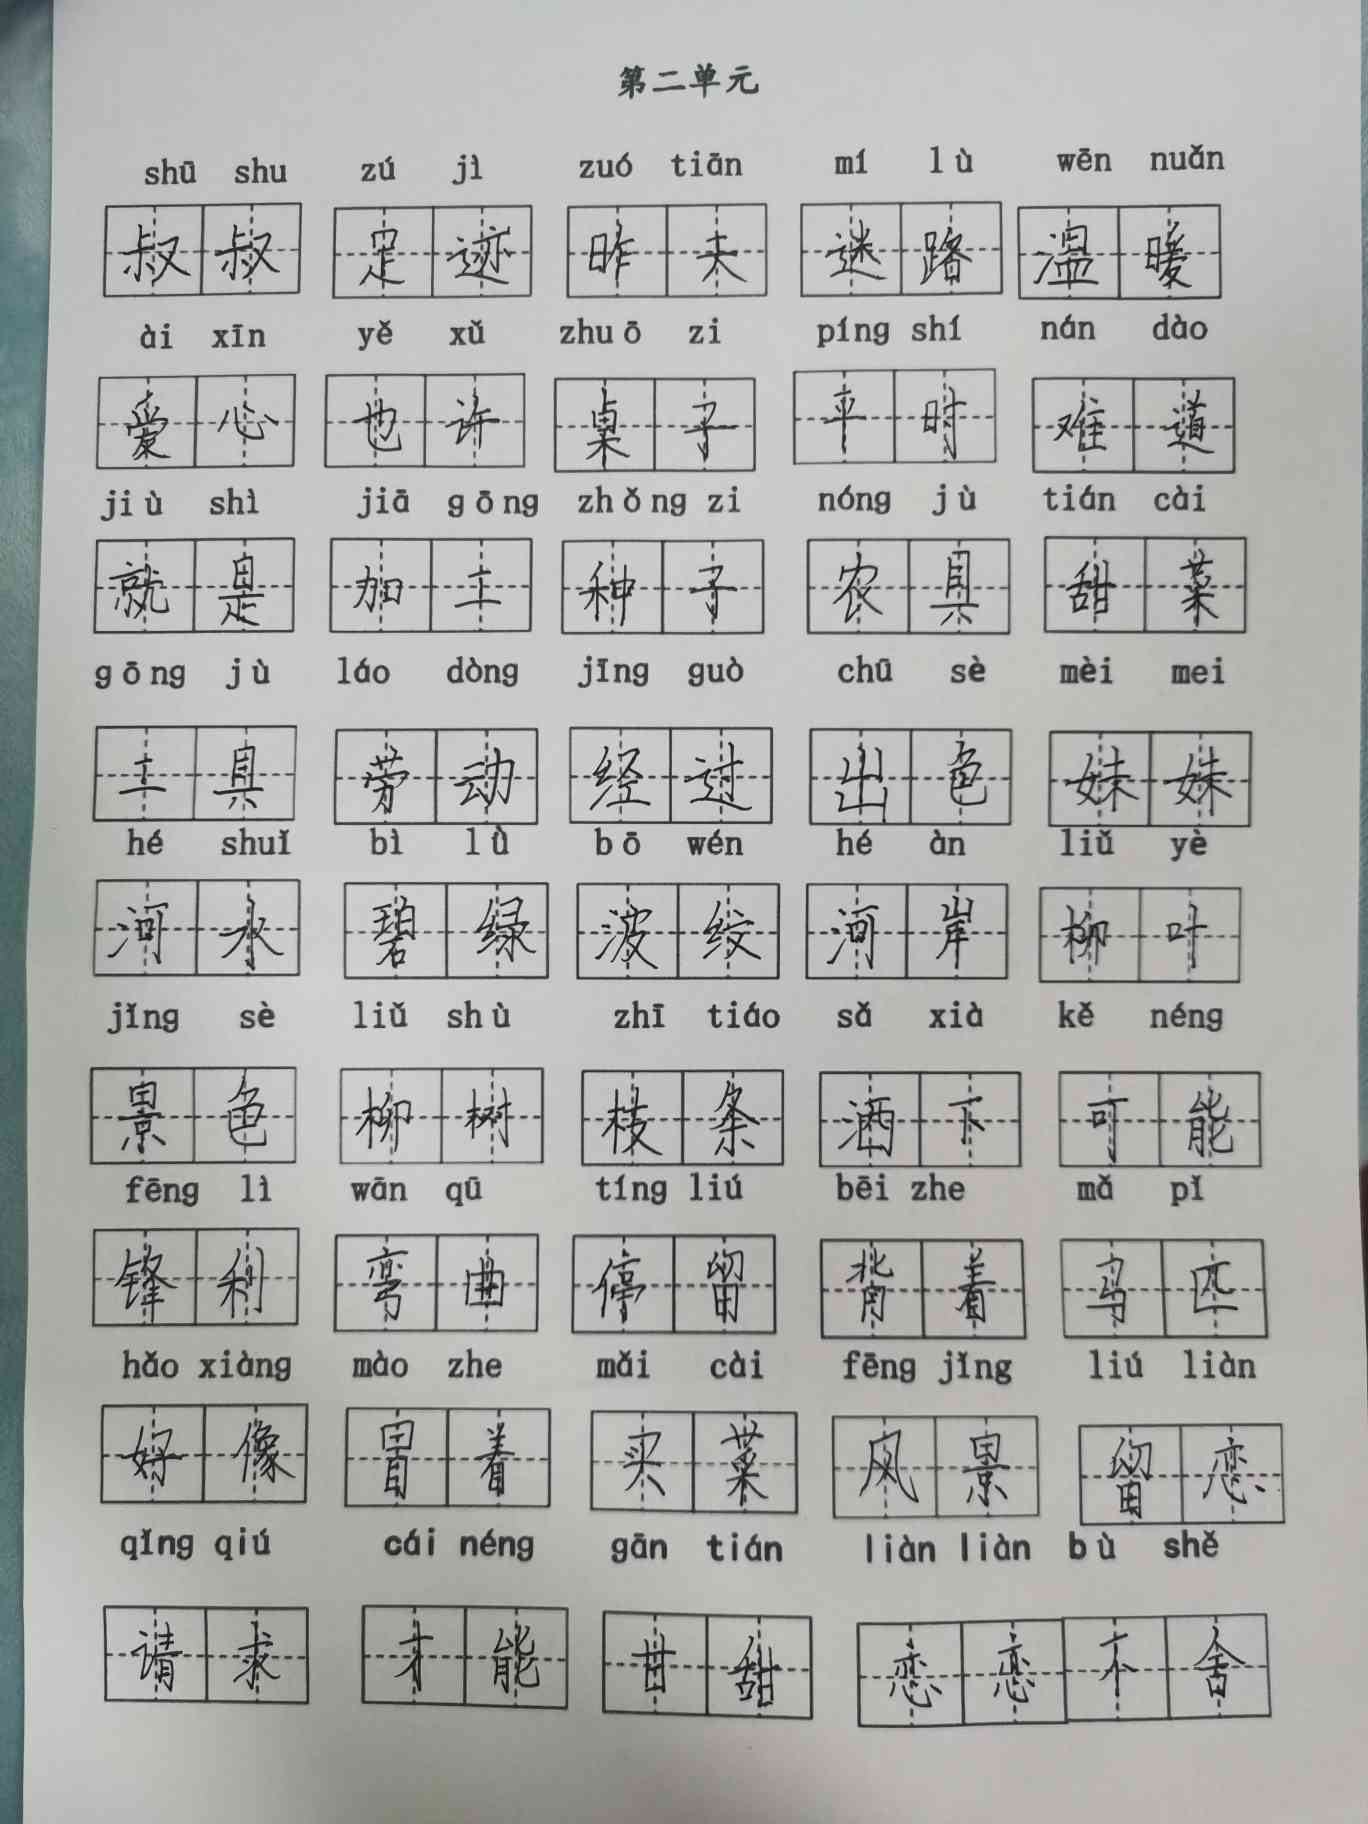 第二单元
shū shu zú jì zuó tiān mí lù wēn nuǎn
叔叔 足迹 昨天 迷路 温暖
ài xīn yě xǔ zhuō zi píng shí nán dào
爱心 也许 桌子 平时 难道
jiù shì jiā gōng zhǒng zi nóng jù tián cài
就是 加工 种子 农具 甜菜
gōng jù láo dòng jīng guò chū sè mèi mei
工具 劳动 经过 出色 妹妹
hé shuǐ bì lǜ bō wén hé àn liǔ yè
河水 碧绿 波纹 河岸 柳叶
jǐng sè liǔ shù zhī tiáo sǎ xià kě néng
景色 柳树 枝条 洒下 可能
fēng lì wān qū tíng liú bēi zhe mǎ pǐ
锋利 弯曲 停留 背着 马匹
hǎo xiàng mào zhe mǎi cài fēng jǐng liú liàn
好像 冒着 买菜 风景 留恋
qǐng qiú cái néng gān tián liàn liàn bù shě
请求 才能 甘甜 恋恋不舍